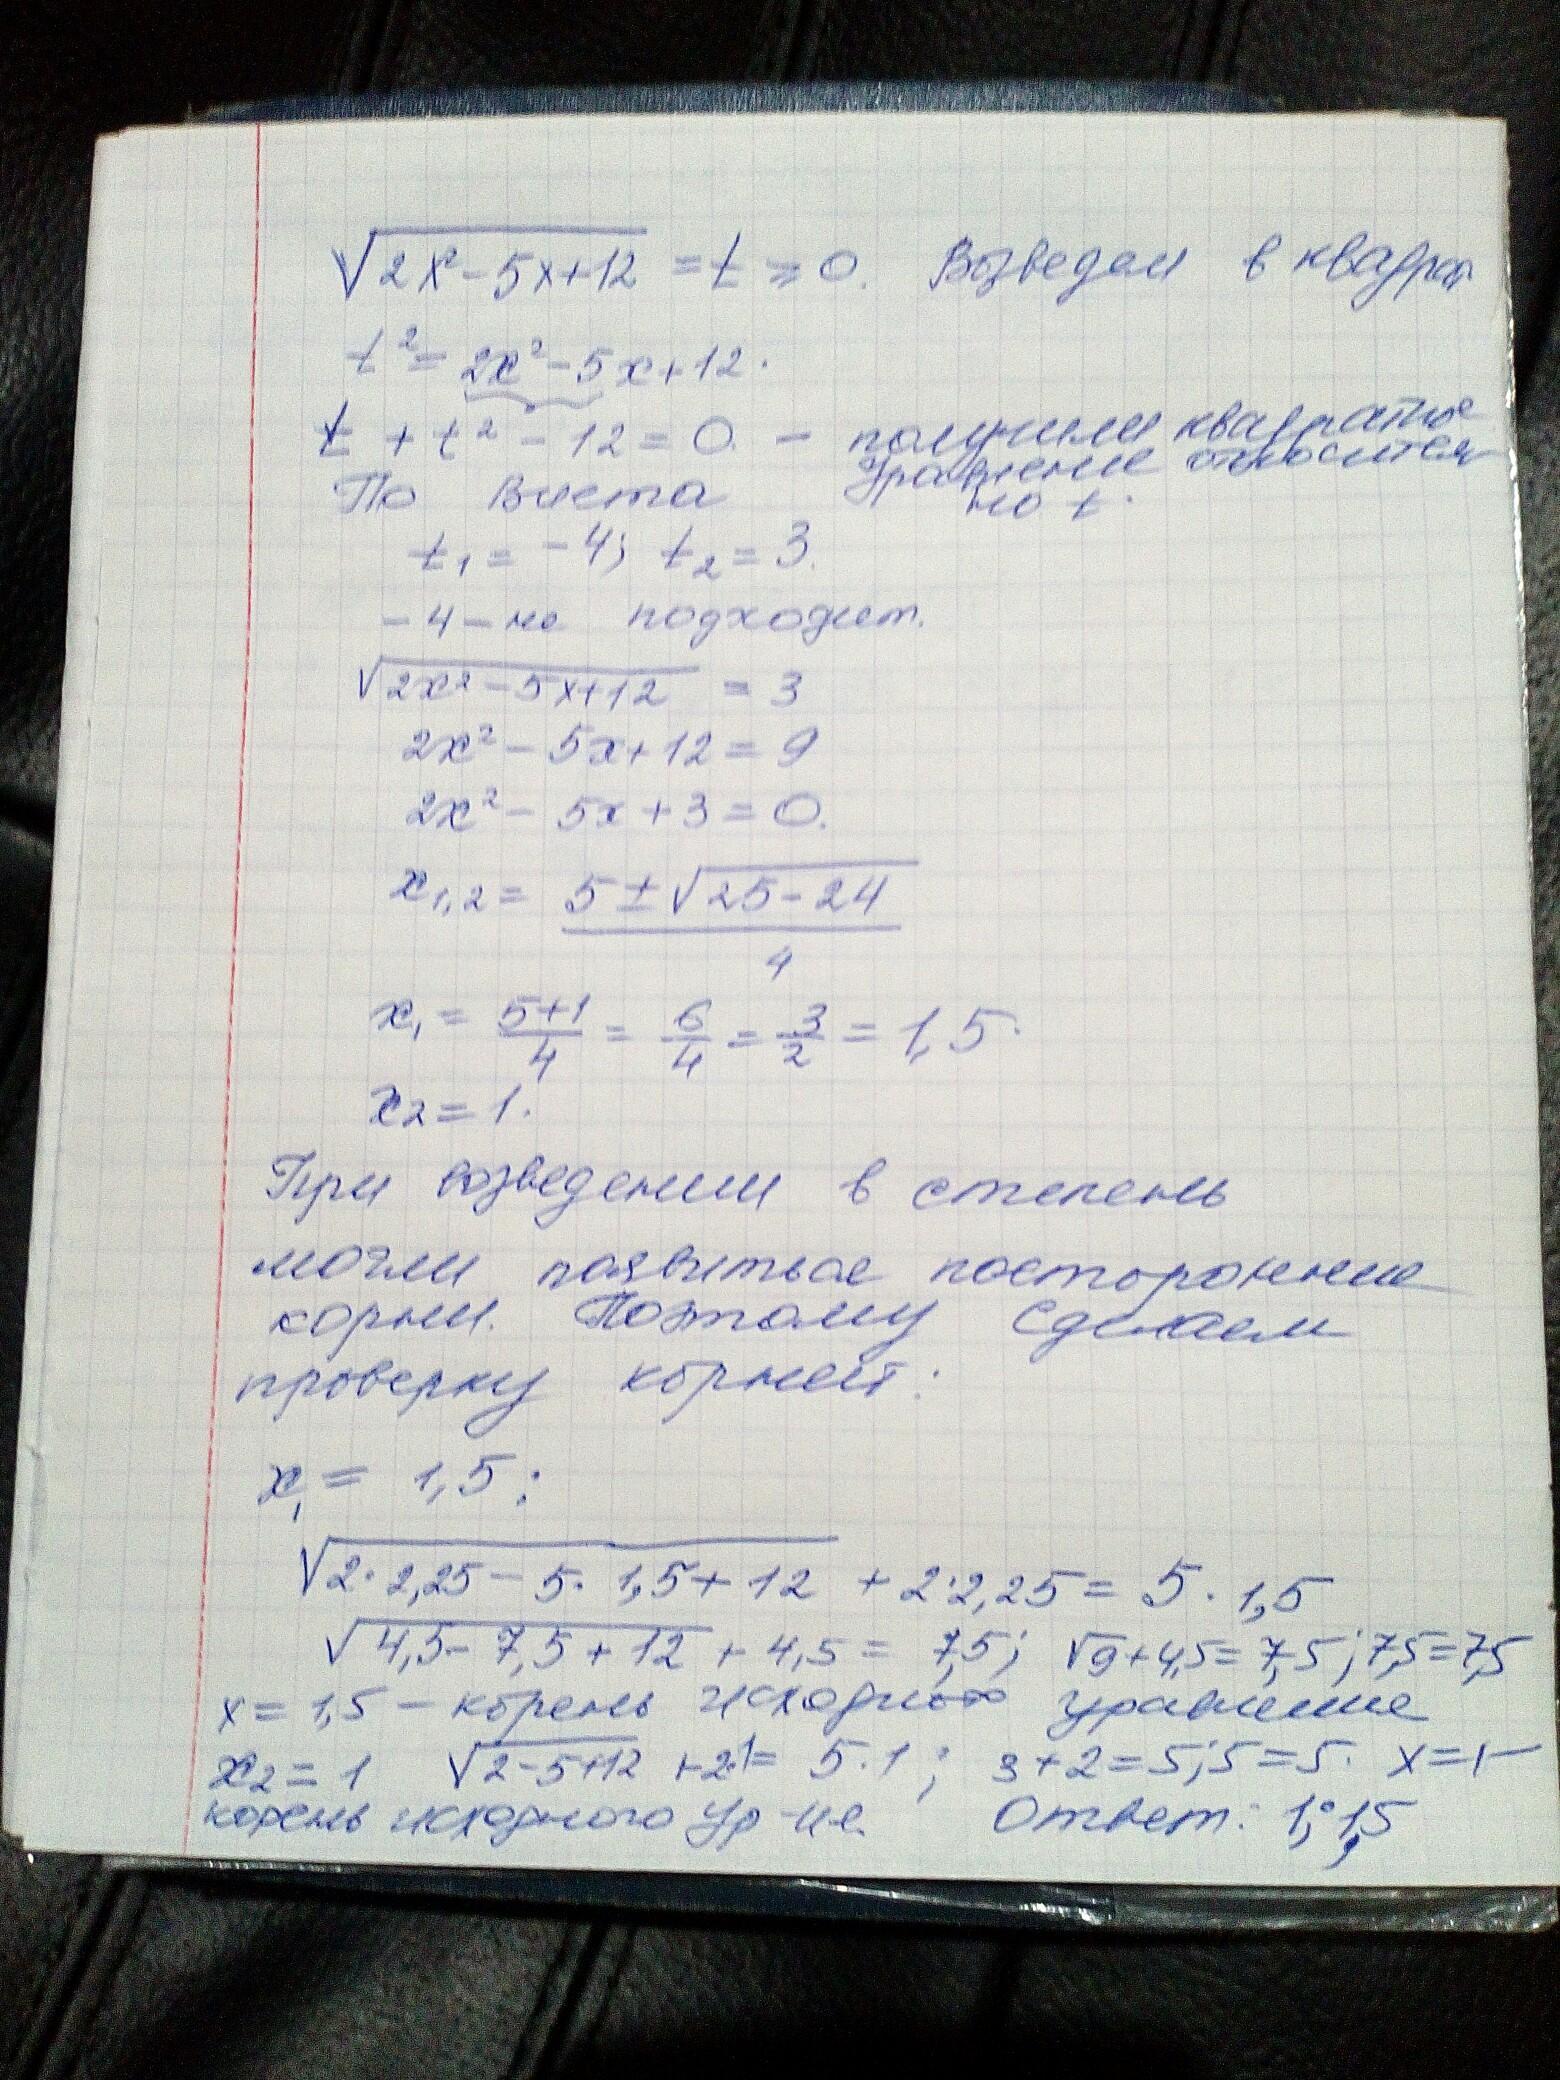 √2x²-5x+12 = t ≥ 0. Возведем в квадрат
t² = 2x² - 5x + 12.
t + t² - 12 = 0. - получили квадратное
уравнение относительно t.
По Виета
t₁ = -4; t₂ = 3.
-4 - не подходит.
√2x² - 5x + 12 = 3
2x² - 5x + 12 = 9
2x² - 5x + 3 = 0.
x₁,₂ = (5 ± √25 - 24) / 4
x₁ = (5+1)/4 = 6/4 = 3/2 = 1,5.
x₂ = 1.
При возведении в степень
могли появиться посторонние
корни. Поэтому сделаем
проверку корней:
x₁ = 1,5:
√2·2,25 - 5·1,5 + 12 + 2·2,25 = 5·1,5
√4,5 - 7,5 + 12 + 4,5 = 7,5; √9 + 4,5 = 7,5; 7,5 = 7,5
x = 1,5 - корень исходного уравнения
x₂ = 1 √2-5+12 + 2·1 = 5·1; 3+2=5; 5=5. x=1 -
корень исходного ур-ие. Ответ: 1; 1,5